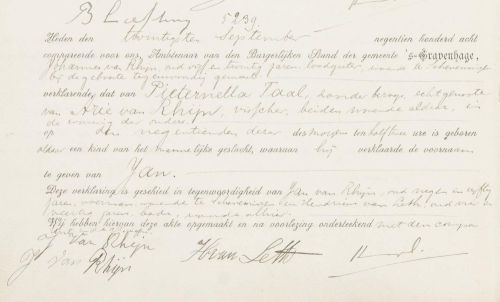 5239
Heden den twintigsten September negentien honderd acht
compareerde voor ons, Ambtenaar van den Burgerlijken Stand der gemeente 's-Gravenhage,
Johannes van Rhijn, oud vijf en twintig jaren, loodgieter, wonende te Scheveningen
bij de geboorte tegenwoordig geweest
verklarende, dat van Pieternella Taal, zonder beroep, echtgenoote
van Arie van Rhijn, visscher, beiden wonende aldaar, in
de woning der ouders
op den negentienden dezer des morgens ten half twee ure is geboren
aldaar een kind van het mannelijke geslacht, waaraan hij verklaarde de voornamen
te geven van Jan.
Deze verklaring is geschied in tegenwoordigheid van Jan van Rhijn, oud negen en vijftig
jaren, voerman, wonende te Scheveningen en Hendricus van Leth, oud
veertig jaren, bode, wonende alhier.
Wij hebben hiervan deze akte opgemaakt en na voorlezing onderteekend met den compa
J Van Rhijn
J Van Rhijn H van Leth